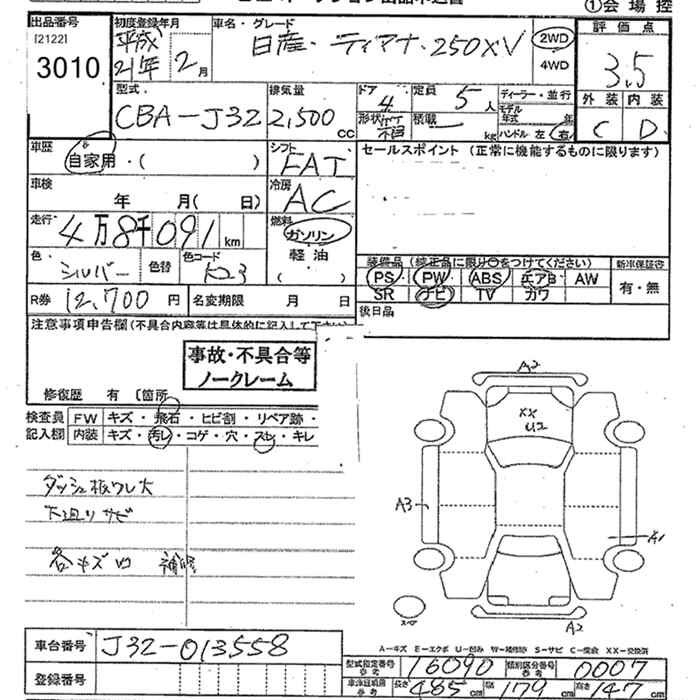 ①会場控
出品番号 [2122] 3010
初度登録年月 平成21年2月
車名・グレード 日産・ティアナ・250XV
2WD
4WD
評価点 3.5
外装 C 内装 D
型式 CBA-J32
排気量 2,500cc
ドア 4
定員 5人
形状
積載 kg
ディーラー・並行
モデル年式 年
ハンドル 左 右
車歴 自家用・( )
シフト FAT
セールスポイント (正常に機能するものに限ります)
車検 年 月( 日)
冷房 AC
走行 4万8千091km
燃料 ガソリン
軽油
( )
色 シルバー 色替
色コード K23
装備品(純正品に限り○をつけてください)
PS PW ABS エアB AW
SR ナビ TV カワ
新車保証書 有・無
R券 12,700円
名変期限 月 日
後日品
注意事項申告欄(不具合内容等は具体的に記入して下さい)
事故・不具合等
ノークレーム
修復歴 有 〔箇所
検査員記入欄
FW キズ・飛石・ヒビ割・リペア跡・
内装 キズ・汚レ・コゲ・穴・スレ・キレ
ダッシュ板ワレ大
下廻りサビ
各キズ凹 補修
A2
XX
U2
A3
A1
A2
A-キズ E-エクボ U-凹み W-補修跡 S-サビ C-腐食 XX-交換済
車台番号 J32-013558
登録番号
型式指定番号 参考 16090
類別区分番号 参考 0007
長さ 485cm 幅 179cm 高さ 147cm